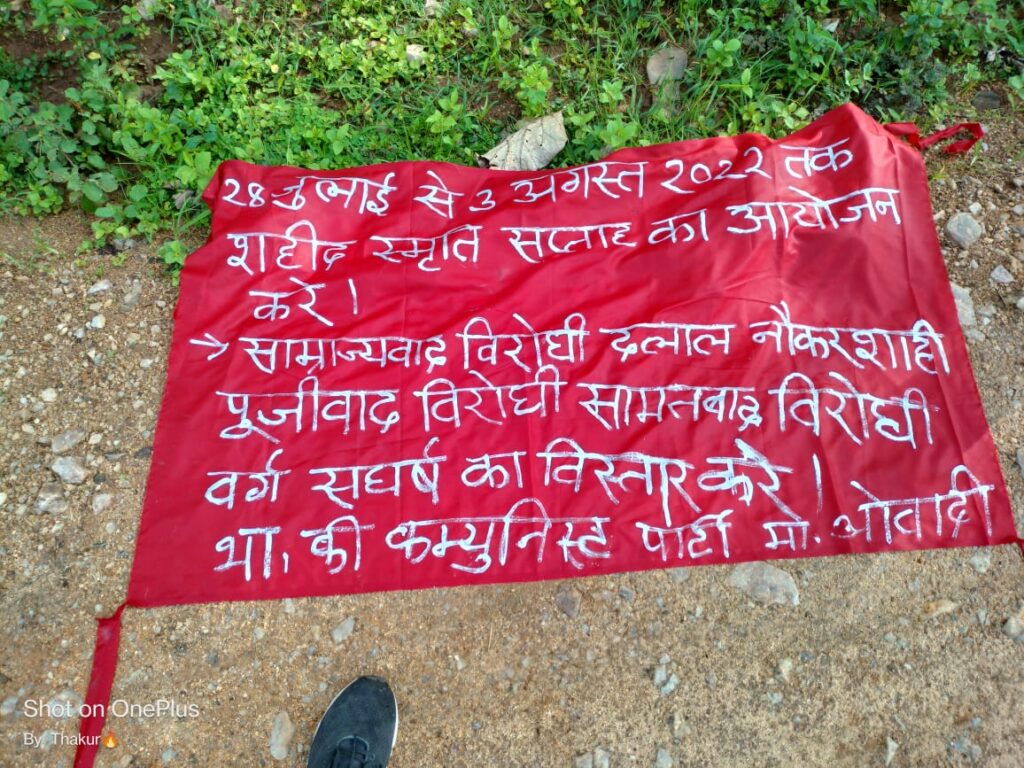 28 जुलाई से 3 अगस्त 2022 तक
शहीद स्मृति सप्ताह का आयोजन
करे ।
→ साम्राज्यवाद विरोधी दलाल नौकरशाही
पूजीवाद विरोधी सामतवाद विरोधी
वर्ग सघर्ष का विस्तार करे ।
भा. की कम्युनिस्ट पार्टी मा. ओवादी
Shot on OnePlus
By. Thakur🔥